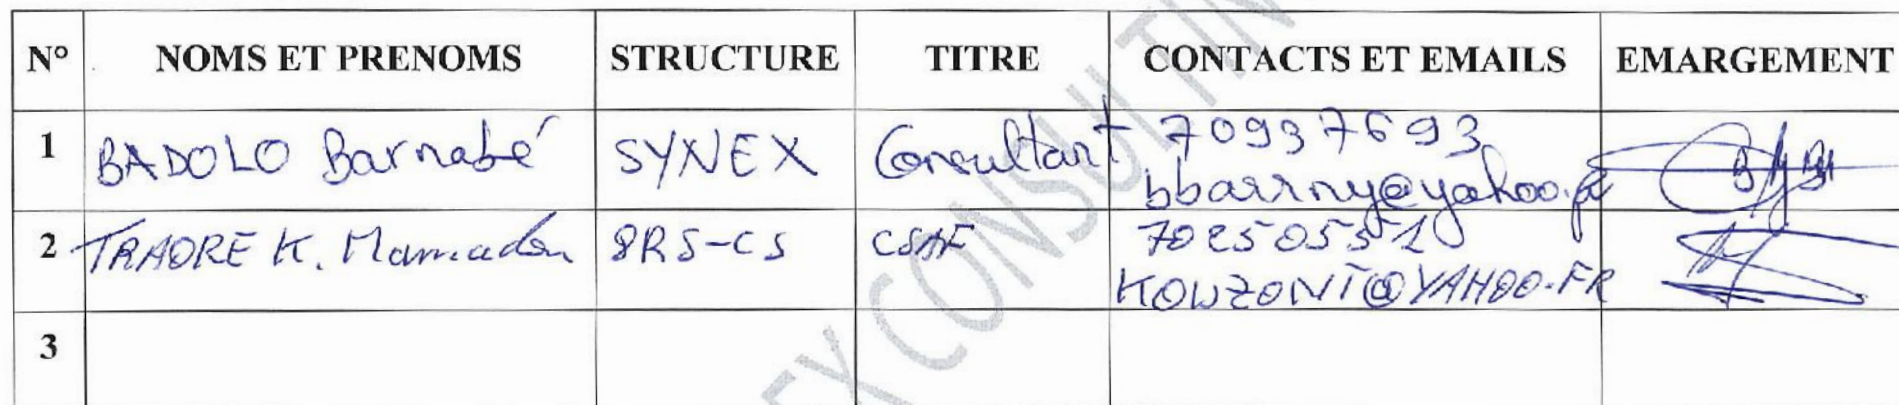 N° NOMS ET PRENOMS STRUCTURE TITRE CONTACTS ET EMAILS EMARGEMENT
1 BADOLO Barnabé SYNEX Consultant 70937693
bbarrny@yahoo.fr
2 TRAORE K. Mamadou DRS-CS CSAF 70250551
KOWZONI@YAHOO.FR
3
EX CONSULTIN